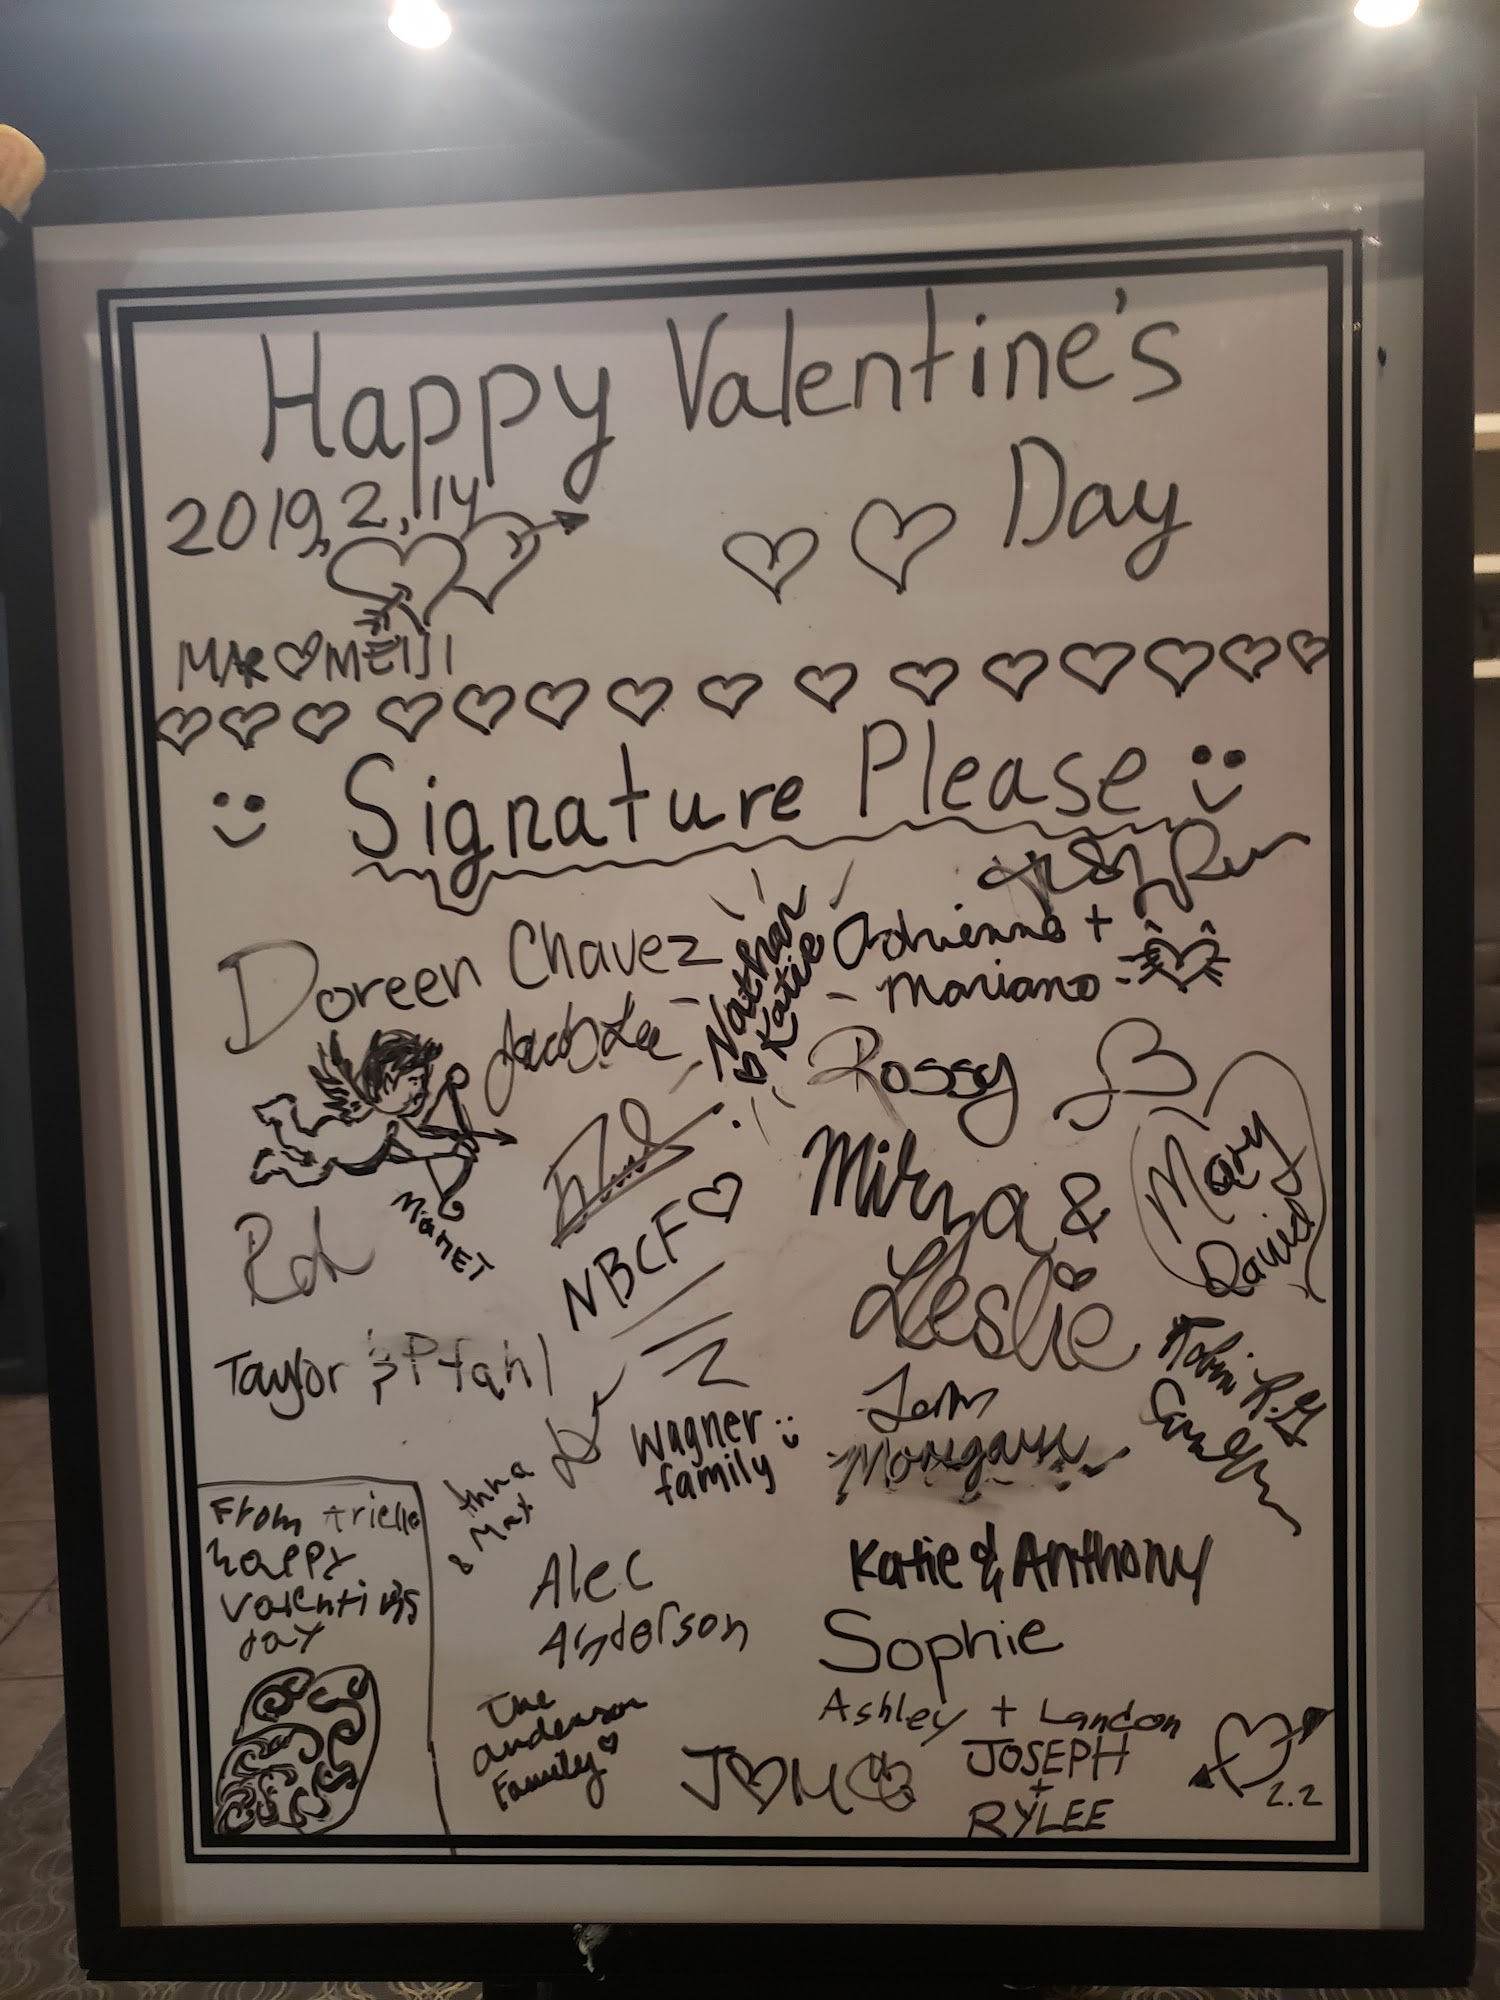 Happy Valentine's
Day
2019, 2, 14
MAR♡MEIJI
Signature Please
Doreen Chavez
Nathan
♡ Katie
Adrienne +
Mariano
Jacob Lee
Rossy
Mary
David
Mirza &
Leslie
NBCF♡
Taylor & Pfahl
Wagner
family
Morgan
Anna
& Mat
From Arielle
happy
valentins
day
Alec
Anderson
Katie & Anthony
Sophie
The
anderson
Family♡
Ashley + Landon
J♡M
JOSEPH
+
RYLEE
2.2